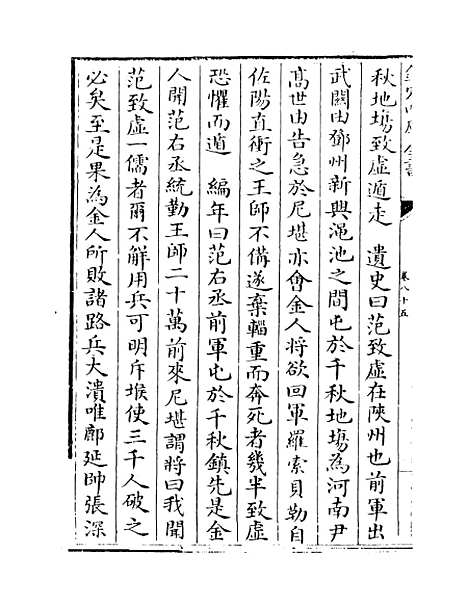 秋地塲致虛遁走　遺史曰范致虛在陜州也前軍出
武關由鄧州新興澠池之間屯於千秋地塲為河南尹
髙世由告急於尼堪亦會金人將欲回軍羅索貝勒自
佐陽直衝之王師不備遂棄輜重而奔死者幾半致虛
恐懼而遁　編年曰范右丞前軍屯於千秋鎮先是金
人聞范右丞統勤王師二十萬前來尼堪謂將曰我聞
范致虛一儒者爾不解用兵可明斥堠使三千人破之
必矣至是果為金人所敗諸路兵大潰唯鄜延帥張深
卷八十五